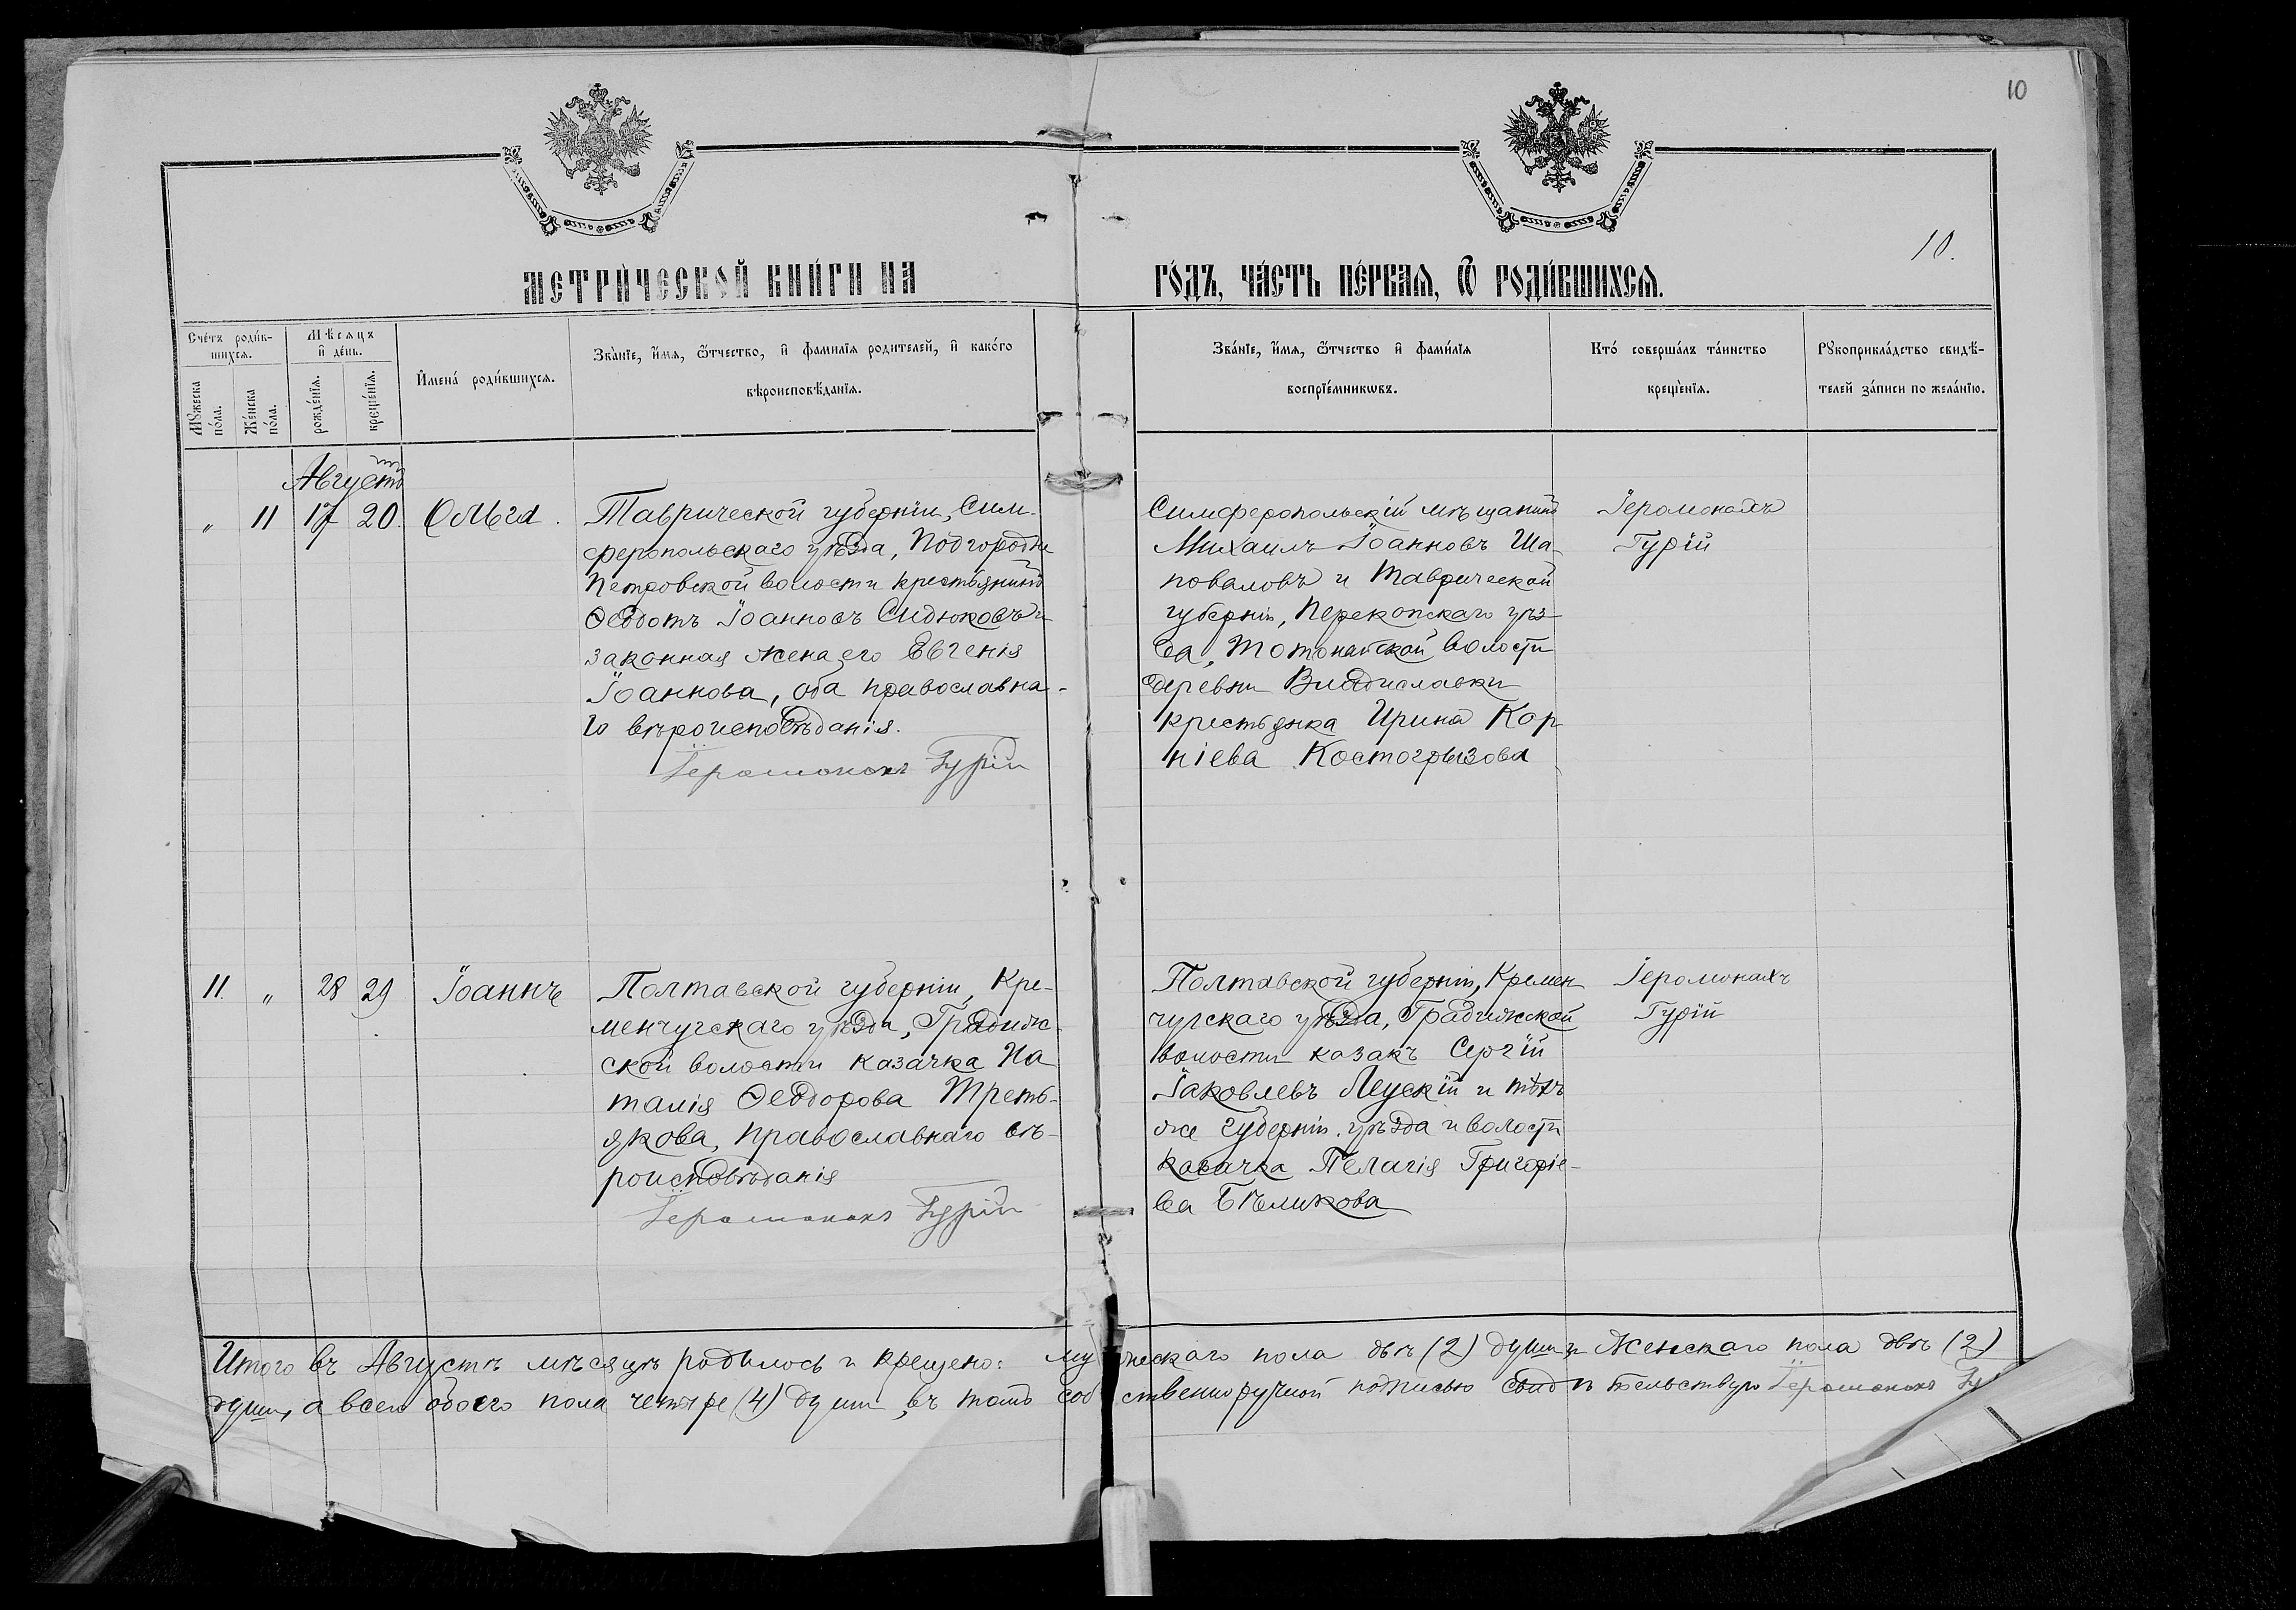 10
10.
МЕТРИ́ЧЕСКОЙ КНИ́ГИ НА
ГО́ДЪ, ЧА́СТЬ ПЕ́РВАѦ, Ѿ РОДИ́ВШИХСѦ.
Сче́тъ роди́в-
шихсѧ.
Мꙋжеска по́ла.
Же́нска по́ла.
Мѣ́сѧцъ
и҆ де́нь.
рожде́нїѧ.
креще́нїѧ.
И҆мена́ роди́вшихсѧ.
Зва́нїе, и҆́мѧ, ѻ҆́тчество, и҆ фами́лїѧ родителей, и҆ како́гѡ
вѣроисповѣ́данїѧ.
Зва́нїе, и҆́мѧ, ѻ҆́тчество и҆ фами́лїѧ
воспрїе́мникѡвъ.
Кто́ соверша́лъ та́инство
креще́нїѧ.
Рꙋкоприкла́дство свидѣ́-
телей за́писи по жела́нїю.
Августъ
„ 11 17 20. Ольга.
Таврической губернiи, Сим-
феропольскаго уѣзда, Подгородне
Петровской волости крестьянинъ
Ѳеодотъ Iоанновъ Сидюковъ и
законная жена его Евгенiя
Iоаннова, оба православна-
го вѣроисповѣданiя.
Iеромонахъ Гурiй
Симферопольскiй мѣщанинъ
Михаилъ Iоанновъ Ша-
поваловъ и Таврической
губернiи, Перекопскаго уѣз-
да, Тотонайской волости
деревни Владиславки
крестьянка Ирина Кор
нiева Костогрызова
Iеромонахъ
Гурiй
11. „ 28 29 Iоаннъ
Полтавской губернiи, Кре-
менчугскаго уѣзда, Градиж-
ской волости казачка На
талiя Ѳеодорова Треть-
якова, православнаго вѣ-
роисповѣданiя
Iеромонахъ Гурiй
Полтавской губернiи, Кремен
чугскаго уѣзда, Градижской
волости казакъ Сергiй
Iаковлевъ Леускiй и тѣхъ
же губернiи, уѣзда и волости
казачка Пелагiя Григорiе-
ва Бѣликова
Iеромонахъ
Гурiй
Итого въ Августѣ мѣсяцѣ родилось и крещено: мужескаго пола двѣ (2) души и женскаго пола двѣ (2)
души, а всего обоего пола четыре (4) души, въ томъ собственноручной подписью свидѣтельствую Iеромонахъ